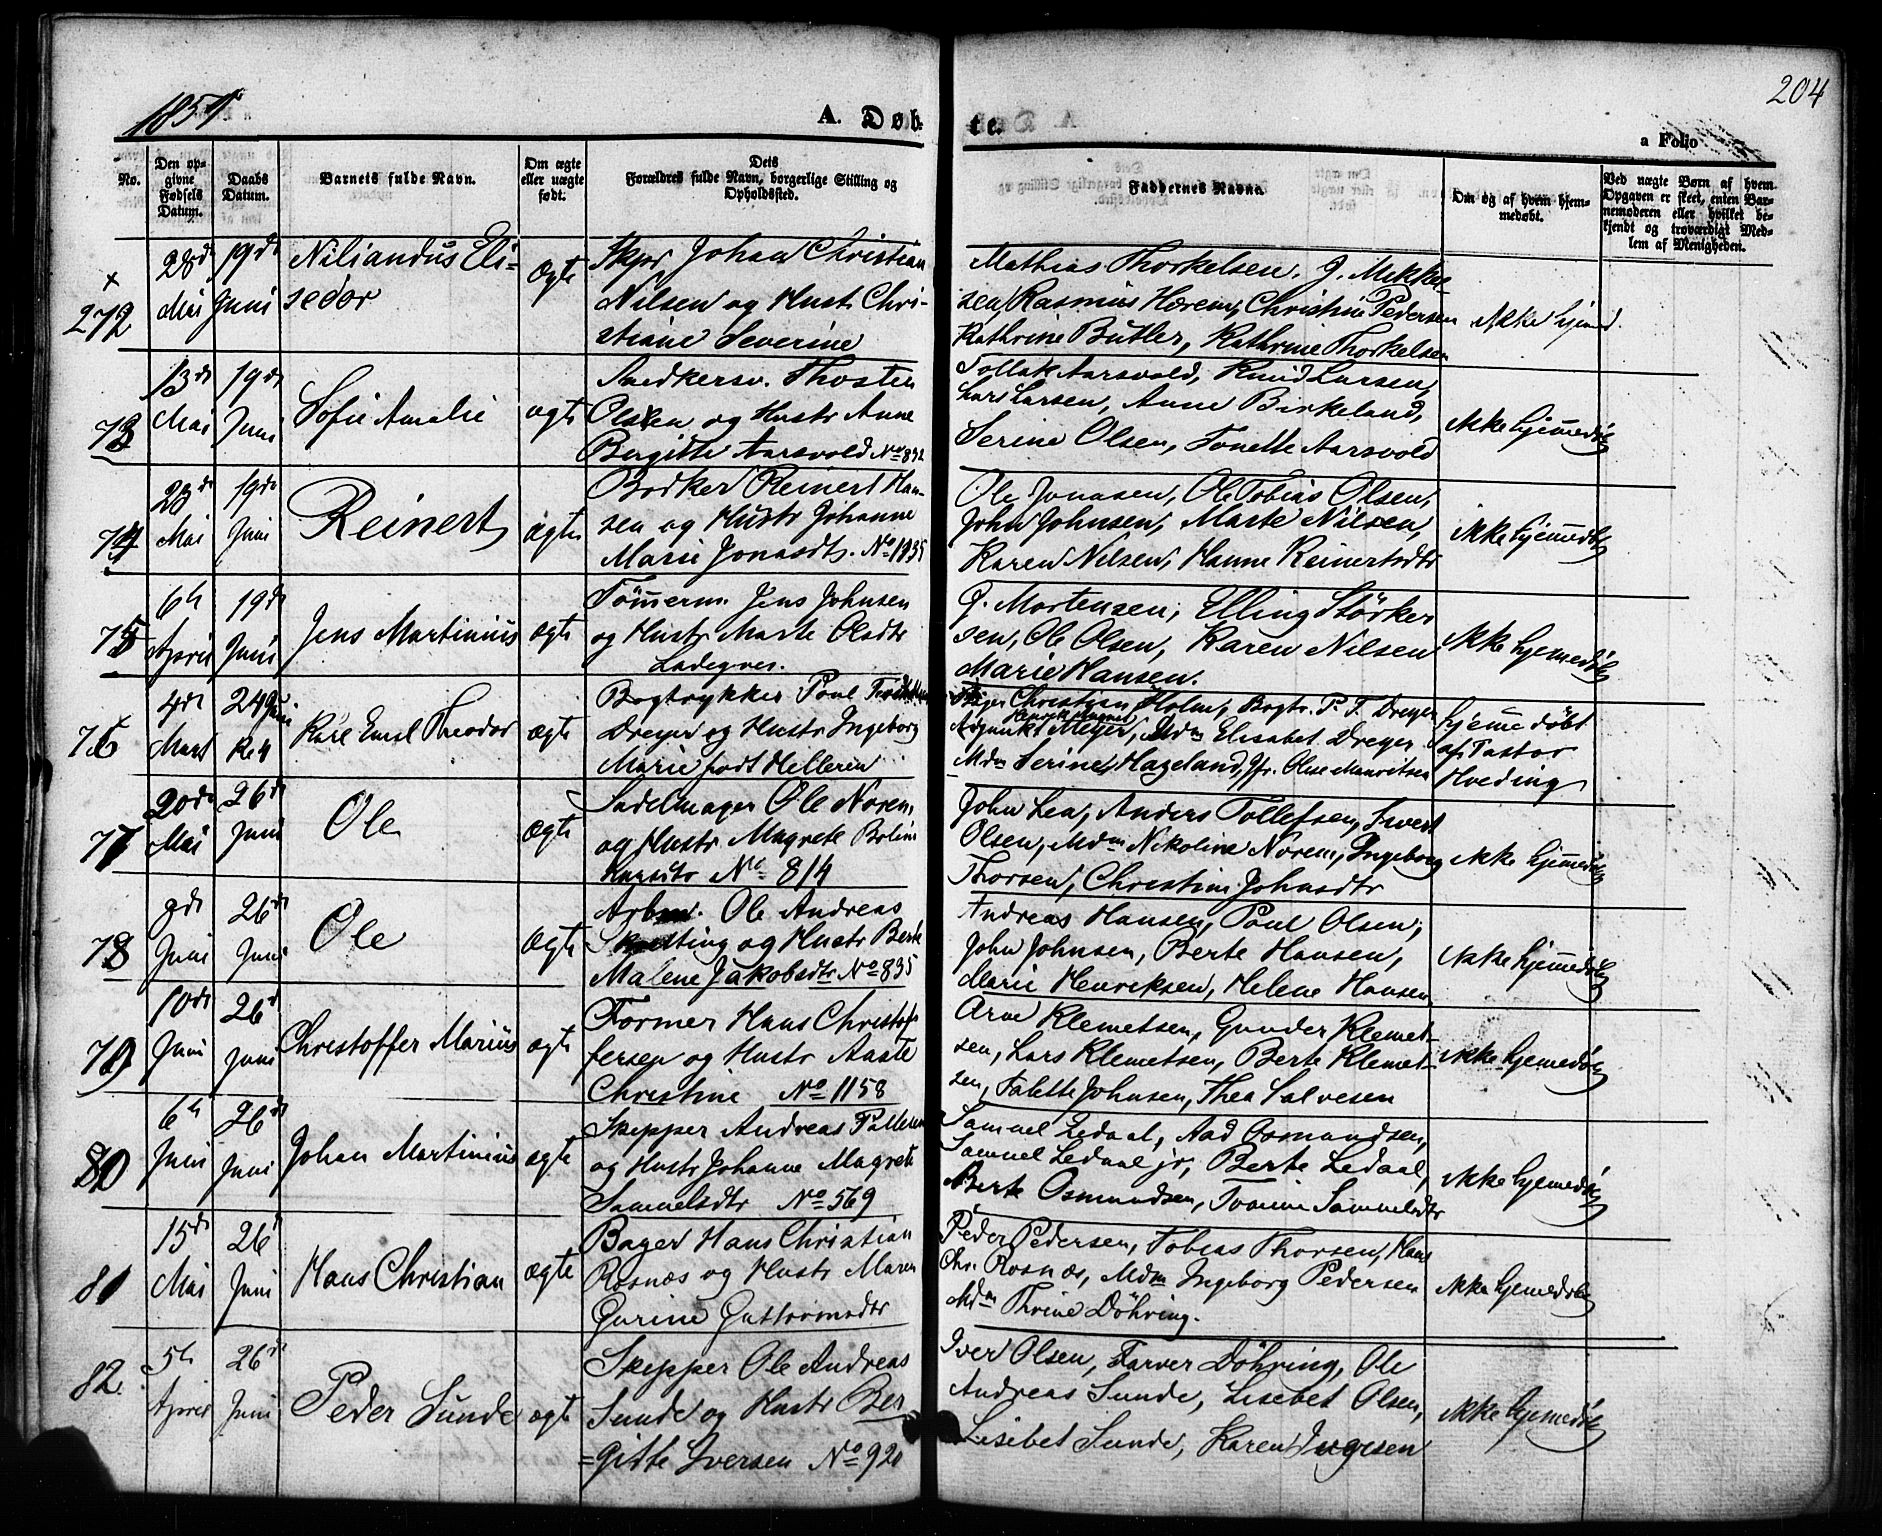 204
A. Døb-
te.
a Folio
No.
Den op-
givne
Fødsels
Datum.
Daabs
Datum.
Barnets fulde Navn.
Om ægte
eller uægte
født.
Dets
Forældres fulde Navn, borgerlige Stilling og
Opholdssted.
Faddernes Navne.
Om og af hvem hjem-
medøbt.
Ved uægte Børn af hvem
Opgaven er skeet, enten Bar-
nemoderen eller hvilket be-
kjendt og troværdigt Med-
lem af Menigheden.
272
28de Mai
19de Juni
Niliandus Eli-
sedor
ægte
Skpr Johan Christian
Nilsen og Hustr Chri-
stiane Severine
Mathias Thorkelsen, J. Mikkel-
sen, Rasmus Hærem, Christine Pedersen
Kathrine Butler, Kathrine Thorkelsen
Ikke hjemd.
73
13de Mai
19de Juni
Sofie Amalie
ægte
Andkersv. Thosten
Olsen og Hustr Anne
Birgitte Aarsvold No 832
Tollak Aarsvold, Knud Larsen,
Lars Larsen, Anne Birkeland,
Serine Olsen, Tonette Aarsvold
Ikke hjemmedøbt
74
28de Mai
19de Juni
Reinert
ægte
Bødker Reinert Han-
sen og Hustr Johanne
Marie Jonasdtr. No 1035
Ole Jonasen, Ole Tobias Olsen,
John Johnsen, Marte Nilsen,
Karen Nilsen, Hanne Reinertsdtr
Ikke hjemmedøbt
75
6te April
19de Juni
Jens Martinius
ægte
Tømmerm. Jens Johnsen
og Hustr Marte Olsdtr
Ladegaar.
J. Mortensen, Elling Størker
sen, Ole Olsen, Karen Nilsen
Marie Hansen.
Ikke hjemmedøbt
76
4de Mart
24 Juni
Karl Emil Theodor
ægte
Bogtrykker Poul
Dreyer og Hustr Ingeborg
Marie født Helleren
Christian Holm, Bogtr. P. T. Dreyer
Adjunkt Meyer, Mdm Elisabet Dreyer
Mdm Serine Hageland, Jfr. Olise Mauritsen
hjemmedøbt
af Pastor
Hveding
77
20de Mai
26de Juni
Ole
ægte
Sadelmager Ole Norem,
og Hustr Magrete Boline
No 814
John Lea, Anders Tollefsen, Sivert
Olsen, Mdm Nikoline Norem, Ingeborg
Thorsen, Christine Johnsdtr
Ikke hjemmedøbt
78
Juni
26de Juni
Ole
ægte
Arbm. Ole Andreas
og Hustr Berte
Malene Jakobsdtr No 835
Andreas Hansen, Poul Olsen,
John Johnsen, Berte Hansen,
Marie Henriksen, Helene Hansen
Ikke hjemmedøbt
79
10de Juni
26d Juni
Christoffer Marius
ægte
Former Hans Christof-
fersen og Hustr Aaste
Christine No 1158
Arne Klemetsen, Gunder Klemet-
sen, Lars Klemetsen, Berte Klemet-
sen, Talette Johnsen, Thea Salvesen
Ikke hjemmedøbt
80
6te Juni
26de Juni
Johan Martinius
ægte
Skipper Andreas Pallesen
og Hustr Johanne Magrete
Samuelsdtr No 569
Samuel Ledaal, Aad Osmundsen,
Samuel Ledaal jr, Berte Ledaal,
Berte Osmundsen, Tomine Samuelsdtr
Ikke hjemmedøbt
81
15de Mai
26d Juni
Hans Christian
ægte
Bager Hans Christian
Rosnæs og Hustr Maren
Gurine Guttormsdtr
Peder Pedersen, Tobias Thorsen, Hans
Chr. Rosnæs, Mdm Ingeborg Pedersen
Mdm Thrine Döhring.
Ikke hjemmedøbt
82.
5te April
26de Juni
Peder Sunde
ægte
Skipper Ole Andreas
Sunde og Hustr Ber
=gitte Iversen No 920
Iver Olsen, Farver Döhring, Ole
Andreas Sunde, Lisebet Olsen,
Lisebet Sunde, Karen
Ikke hjemmedøbt